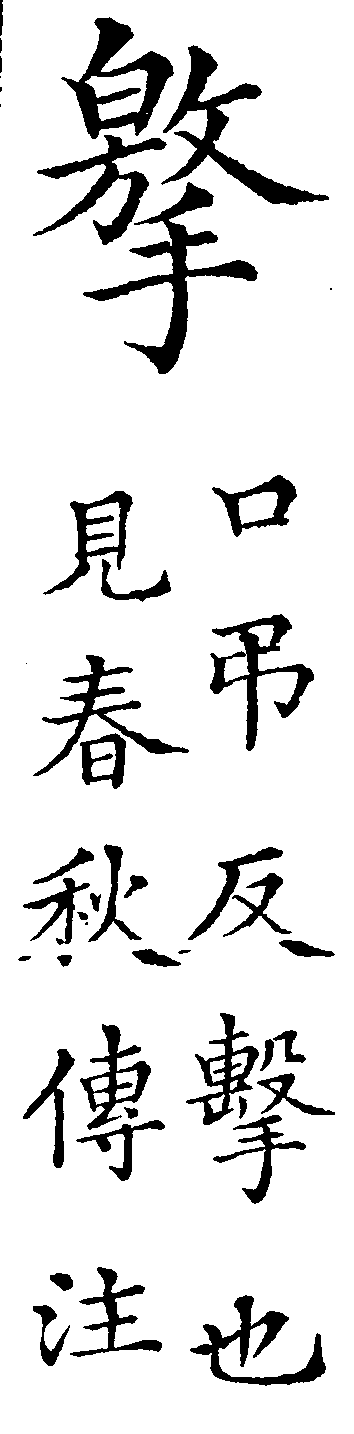 撽
口吊反擊也
見春秋傳注